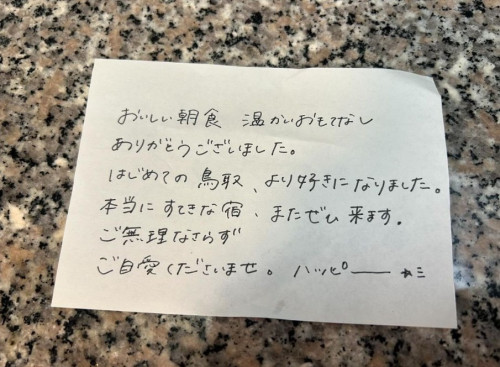 おいしい朝食 温かいおもてなし
ありがとうございました。
はじめての鳥取、より好きになりました。
本当にすてきな宿、またぜひ来ます。
ご無理なさらず
ご自愛くださいませ。 ハッピー